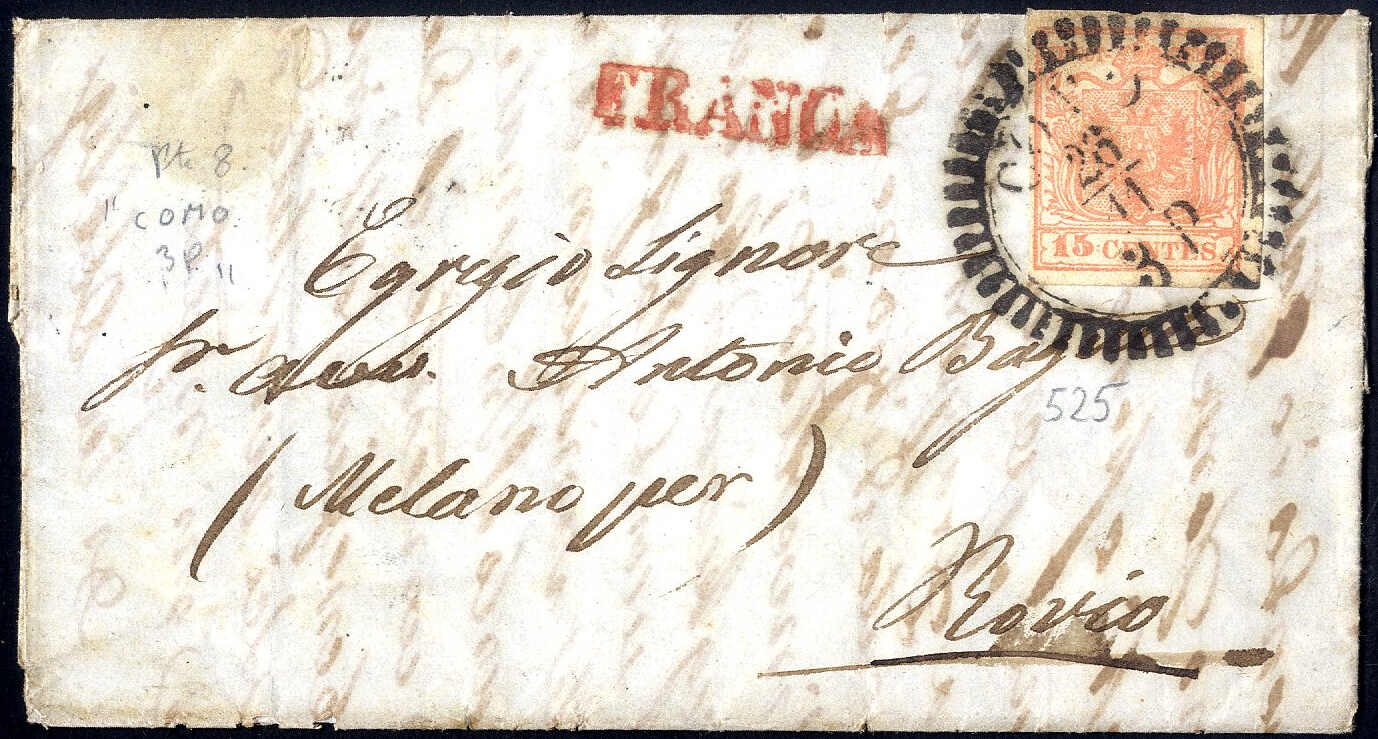 FRANCA
15 CENTES
COMO
Pte 8.
" COMO
3P. "
Egregio Signore
Sr. Avv. Antonio
525
(Melano per)
Rovio